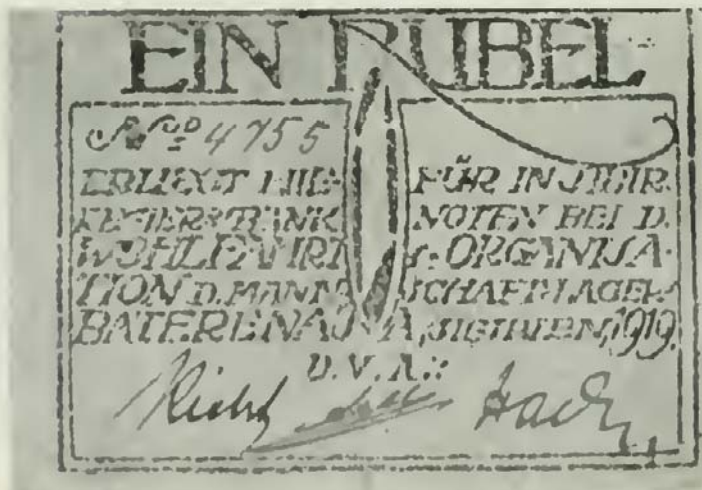 EIN RUBEL
No 4755
ERLIEGT HIE- FÜR IN SIBIR.
BANK NOTEN BEI D.
WOHLFAHRT S-ORGANISA-
TION D. MANN SCHAFTS-LAGER
SIBIRIEN, 1919.
D.V.A.: